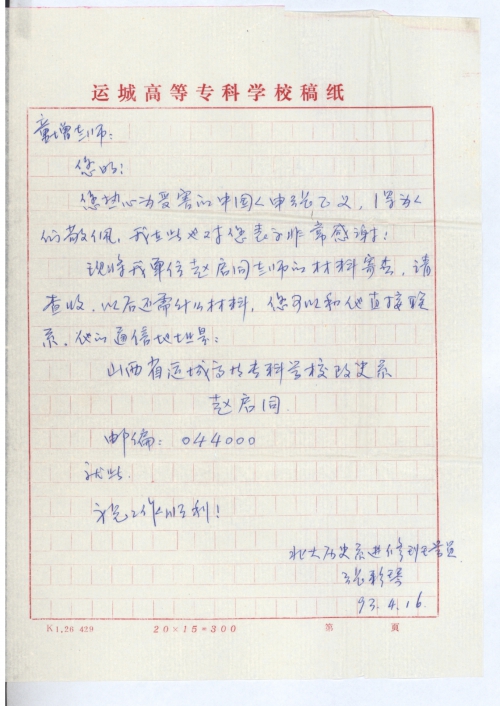 运城高等专科学校稿纸
童增老师:
您好!
您热心为受害的中国人申张正义,得到人
们敬佩,我在此也对您表示非常感谢!
现将我单位赵启同老师的材料寄去,请
查收,以后还需什么材料,您可以和他直接联
系,他的通信地址是:
山西省运城高等专科学校政史系
赵启同
邮编:044000
就此.
祝工作顺利!
北大历史系进修班学员
93.4.16.
K1,26 429
20×15=300
第 页